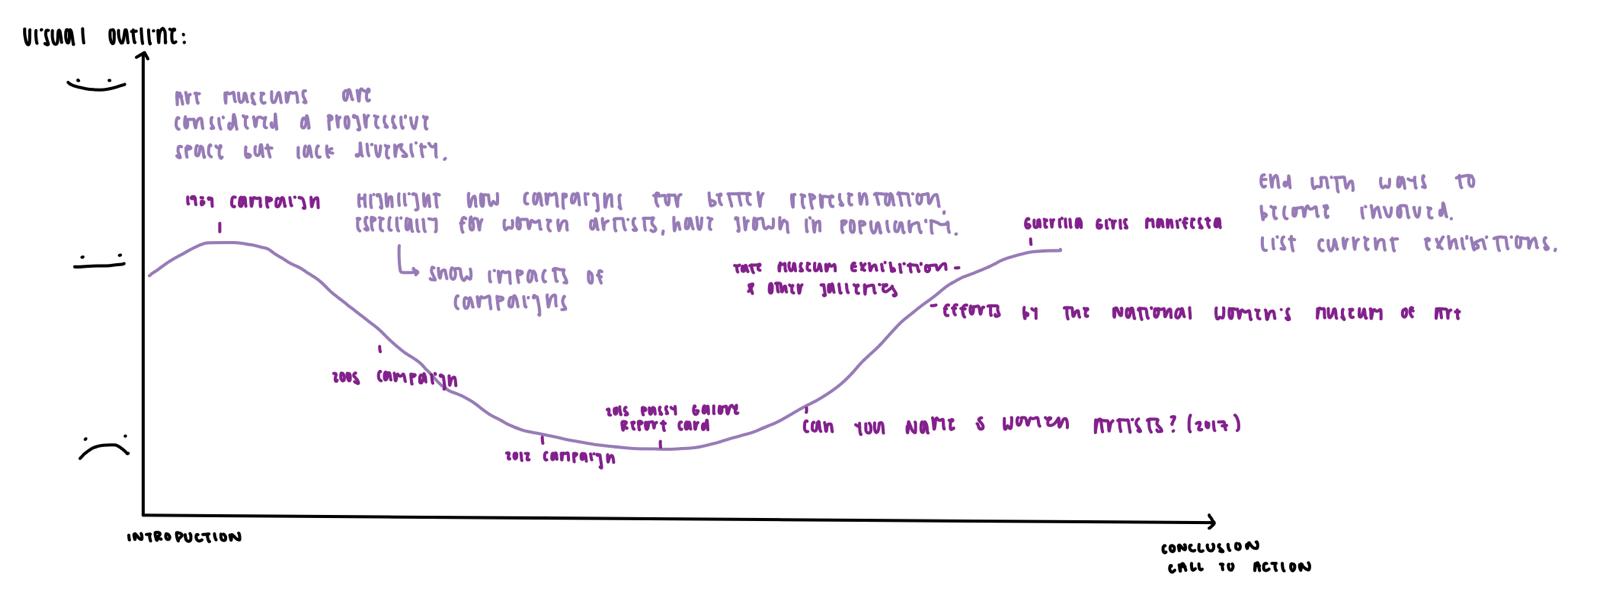 Visual outline:
Art museums are
considered a progressive
space but lack diversity.
1989 campaign
Highlight how campaigns for better representation,
especially for women artists, have grown in popularity.
show impacts of
campaigns
2005 campaign
2012 campaign
2015 Pussy Galore
Report card
Can you name 5 women artists? (2017)
Tate museum exhibition
& other galleries
Efforts by the National Women's Museum of Art
Guerrilla Girls Manifesta
End with ways to
become involved.
List current exhibitions.
INTRODUCTION
CONCLUSION
CALL TO ACTION